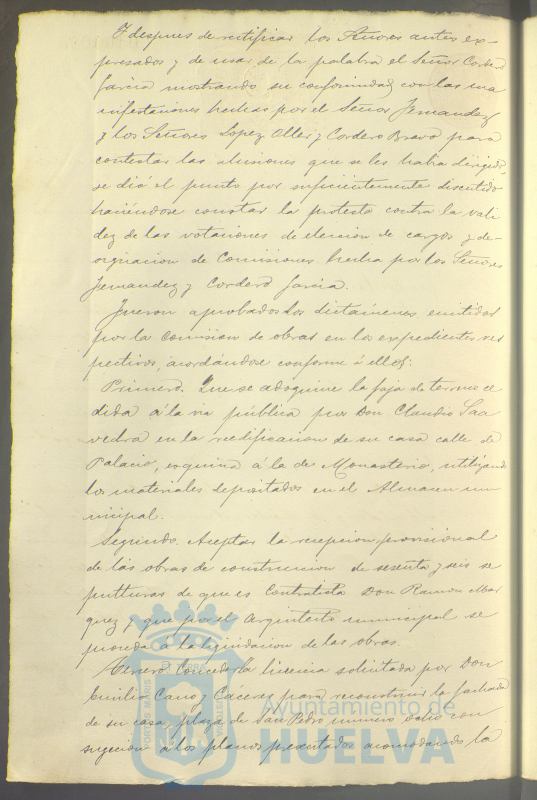 Y despues de rectificar los Señores antes ex-
presados y de usar de la palabra el Señor Cordero
Garcia mostrando su conformidad con las ma
nifestaciones hechas por el Señor Jernandez
y los Señores Lopez Oller y Cordero Bravo para
contestar las alusiones que se les habia dirigido,
se dió el punto por suficientemente discutido
haciéndose constar la protesta contra la vali
dez de las votaciones de eleccion de cargos y de-
signacion de Comisiones hecha por los Señores
Jernandez y Cordero Garcia.
Jueron aprobados los dictámenes emitidos
por la Comision de obras en los expedientes res
pectivos, acordándose conforme á ellos:
Primero. Que se adoquine la faja de terreno ce
dida á la via pública por Don Claudio Saa
vedra en la reedificacion de su casa calle de
Palacio, esquina á la de Monasterio, utilizando
los materiales depositados en el Almacen mu
nicipal.
Segundo. Aceptar la recepcion provisional
de las obras de construccion de sesenta y seis se
pulturas de que es Contratista Don Ramon Mar
quez y que por el Arquitecto municipal se
proceda á la liquidacion de las obras.
Tercero. Conceder la licencia solicitada por Don
Emilio Cano y Caceres para reconstruir la fachada
de su casa, plaza de San Pedro número ocho con
sugecion á los planos presentados acomodando la
Ayuntamiento de
HUELVA